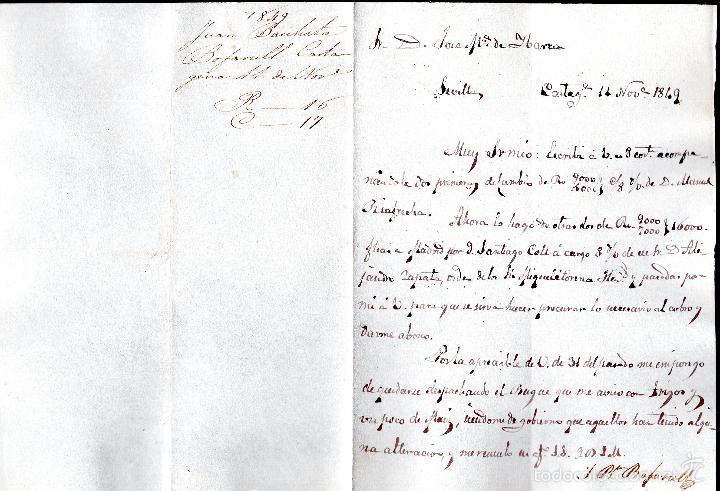 1849
Juan Bautista
Bofarull Carta
gena 11 de Nov.
R — 16
C — 17
Sr. D. José Ma. de Ybarra
Sevilla
Cartaga. 11 Nove. 1849
Muy Sr mio: Escribí á V. a 8 cort. acompa
ñandole dos primeras de cambio de Rs 9000 de D. Manuel
Ahora lo hago de otras dos de Rs. 9000 7000 } 16000
Madrid por D. Santiago Coll á cargo 8 d/v de ese Sr D Ale
jandro Zapata, orden de los Sres y pasadas por
mi á V. para que se sirva hacer procurar lo necesario al cobro y
darme abono.
Por la apreciable de V. de 31 del pasado me impongo
de quedarse despachando el Buque que me avisa con Trigo y
un poco de Maiz, siendome de gobierno que aquellos han tenido algu
na alteracion, y me repito su
J. Bta. Bofarull
todocoleccion